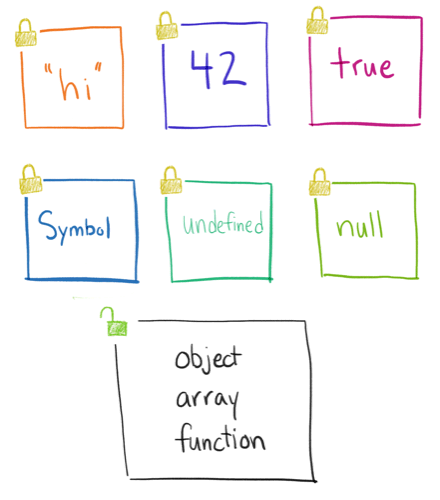 "hi"
42
true
Symbol
undefined
null
object
array
function